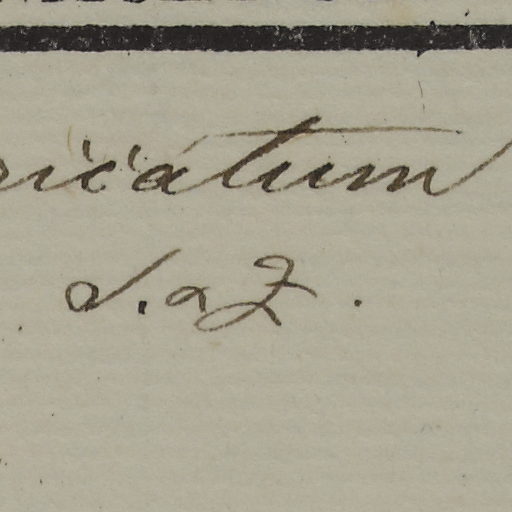 ricatum
S. a Z.